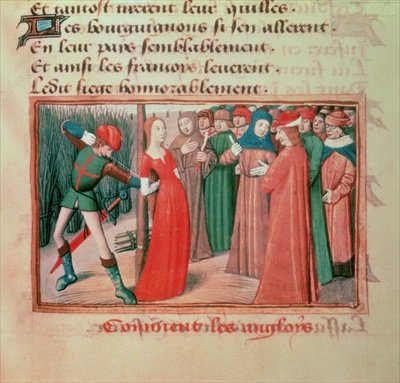 Et tantost tirerent leur quilles.
Les bourguignons si sen allerent.
En leur pais semblablement.
Et ainsi les francoys leverent.
Ledit siege honnorablement.
Comment les angloys